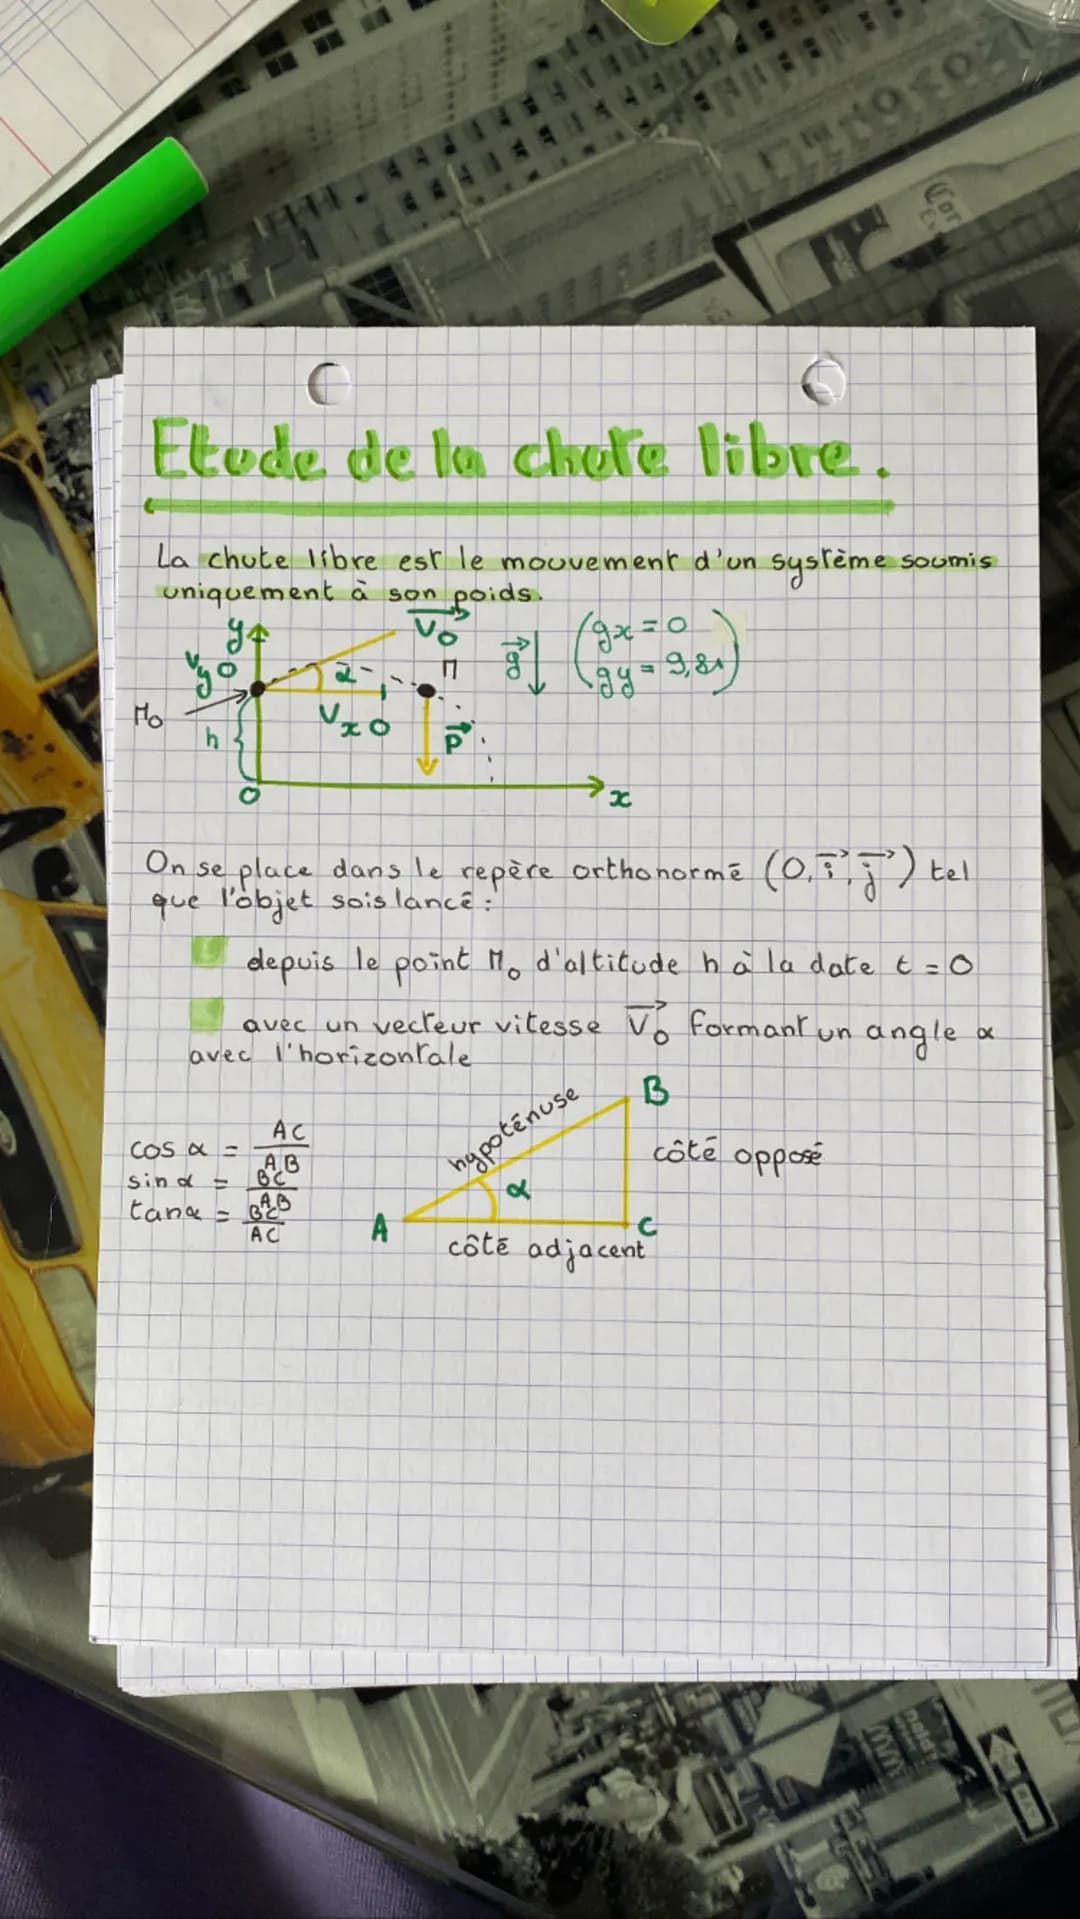 Etude de la chute libre.
La chute libre est le mouvement d'un système soumis
uniquement à son poids.
y
V₀
Vy0
α
M
g
gx = 0
gy = 9,81
M₀
Vx0
P
h
O
x
On se place dans le repère orthonormé (O, i, j) tel
que l'objet sois lancé :
depuis le point M₀ d'altitude h à la date t = 0
avec un vecteur vitesse V₀ formant un angle α
avec l'horizontale
cos α = AC/AB
sin α = BC/AB
tan α = BC/AC
hypoténuse
B
côté opposé
α
A
C
côté adjacent